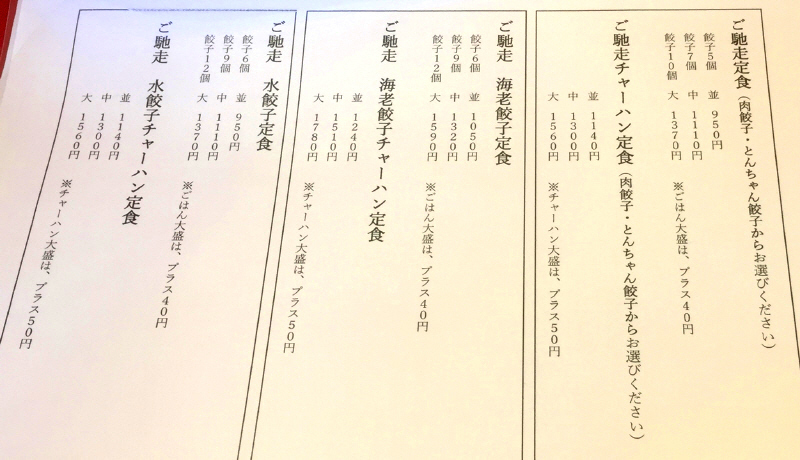 ご馳走定食（肉餃子・とんちゃん餃子からお選びください）
餃子5個　並　950円
餃子7個　中　1110円
餃子10個　大　1370円
※ごはん大盛は、プラス40円
ご馳走チャーハン定食（肉餃子・とんちゃん餃子からお選びください）
並　1140円
中　1300円
大　1560円
※チャーハン大盛は、プラス50円
ご馳走　海老餃子定食
餃子6個　並　1050円
餃子9個　中　1320円
餃子12個　大　1590円
※ごはん大盛は、プラス40円
ご馳走　海老餃子チャーハン定食
並　1240円
中　1510円
大　1780円
※チャーハン大盛は、プラス50円
ご馳走　水餃子定食
餃子6個　並　950円
餃子9個　中　1110円
餃子12個　大　1370円
※ごはん大盛は、プラス40円
ご馳走　水餃子チャーハン定食
並　1140円
中　1300円
大　1560円
※チャーハン大盛は、プラス50円